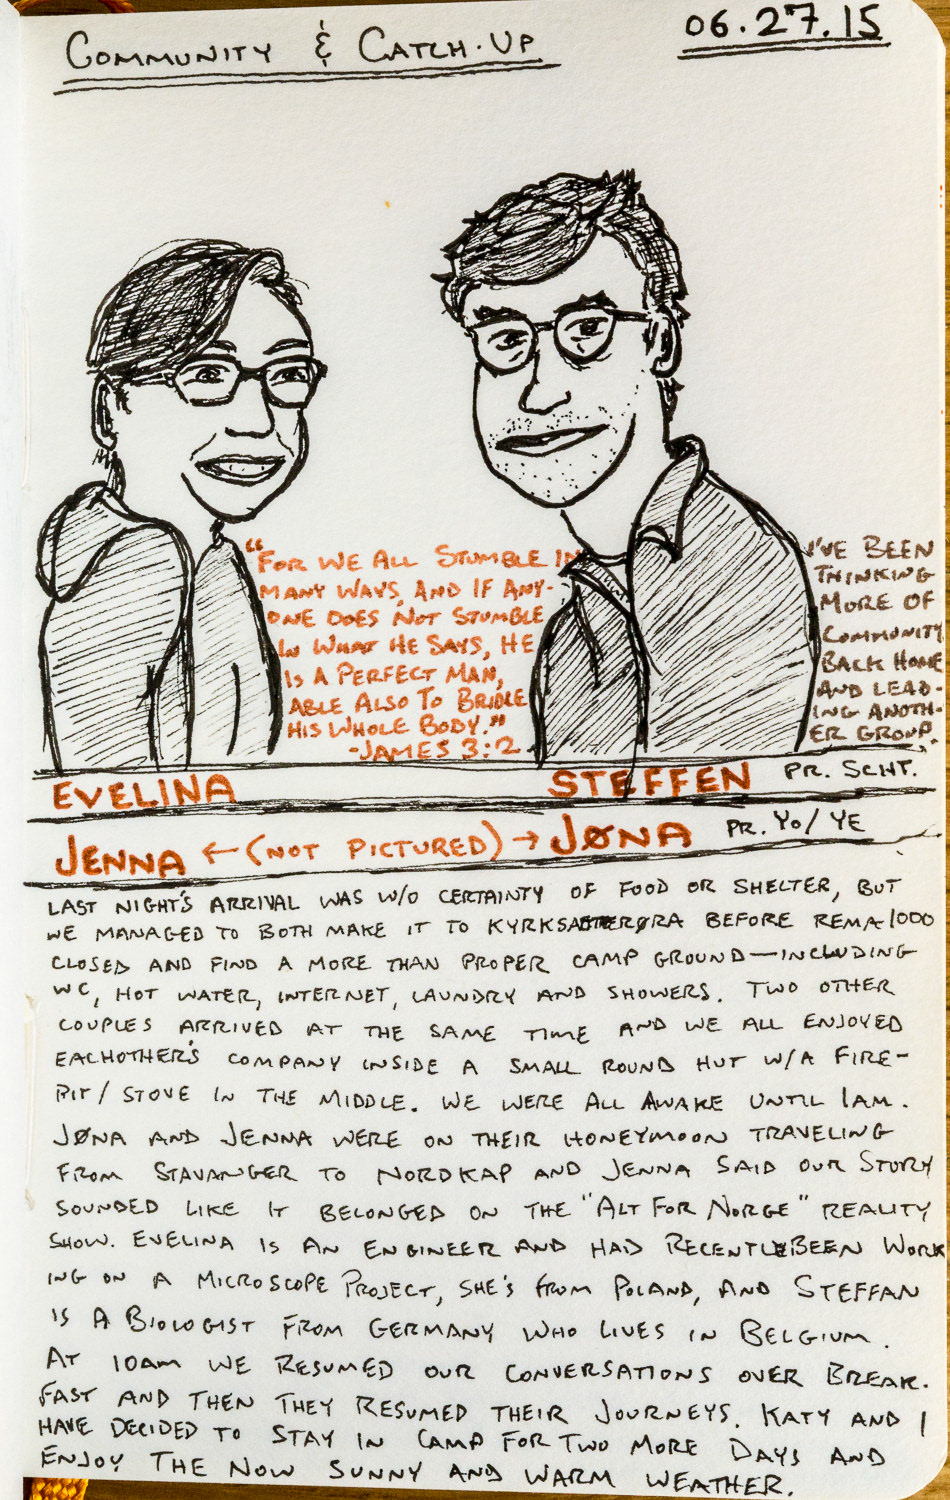 COMMUNITY & CATCH-UP
06.27.15
"FOR WE ALL STUMBLE IN
MANY WAYS, AND IF ANY-
ONE DOES NOT STUMBLE
IN WHAT HE SAYS, HE
IS A PERFECT MAN,
ABLE ALSO TO BRIDLE
HIS WHOLE BODY."
-JAMES 3:2
I'VE BEEN
THINKING
MORE OF
COMMUNITY
BACK HOME
AND LEAD-
ING ANOTH-
ER GROUP.
EVELINA STEFFEN PR. SCHT.
JENNA ← (NOT PICTURED) → JØNA PR. YO/YE
LAST NIGHT'S ARRIVAL WAS W/O CERTAINTY OF FOOD OR SHELTER, BUT
WE MANAGED TO BOTH MAKE IT TO KYRKSÆTERØRA BEFORE REMA 1000
CLOSED AND FIND A MORE THAN PROPER CAMP GROUND—INCLUDING
WC, HOT WATER, INTERNET, LAUNDRY AND SHOWERS. TWO OTHER
COUPLES ARRIVED AT THE SAME TIME AND WE ALL ENJOYED
EACHOTHER'S COMPANY INSIDE A SMALL ROUND HUT W/A FIRE-
PIT/STOVE IN THE MIDDLE. WE WERE ALL AWAKE UNTIL 1AM.
JØNA AND JENNA WERE ON THEIR HONEYMOON TRAVELING
FROM STAVANGER TO NORDKAP AND JENNA SAID OUR STORY
SOUNDED LIKE IT BELONGED ON THE "ALT FOR NORGE" REALITY
SHOW. EVELINA IS AN ENGINEER AND HAD RECENTLY BEEN WORK
ING ON A MICROSCOPE PROJECT, SHE'S FROM POLAND, AND STEFFAN
IS A BIOLOGIST FROM GERMANY WHO LIVES IN BELGIUM.
AT 10AM WE RESUMED OUR CONVERSATIONS OVER BREAK-
FAST AND THEN THEY RESUMED THEIR JOURNEYS. KATY AND I
HAVE DECIDED TO STAY IN CAMP FOR TWO MORE DAYS AND
ENJOY THE NOW SUNNY AND WARM WEATHER.